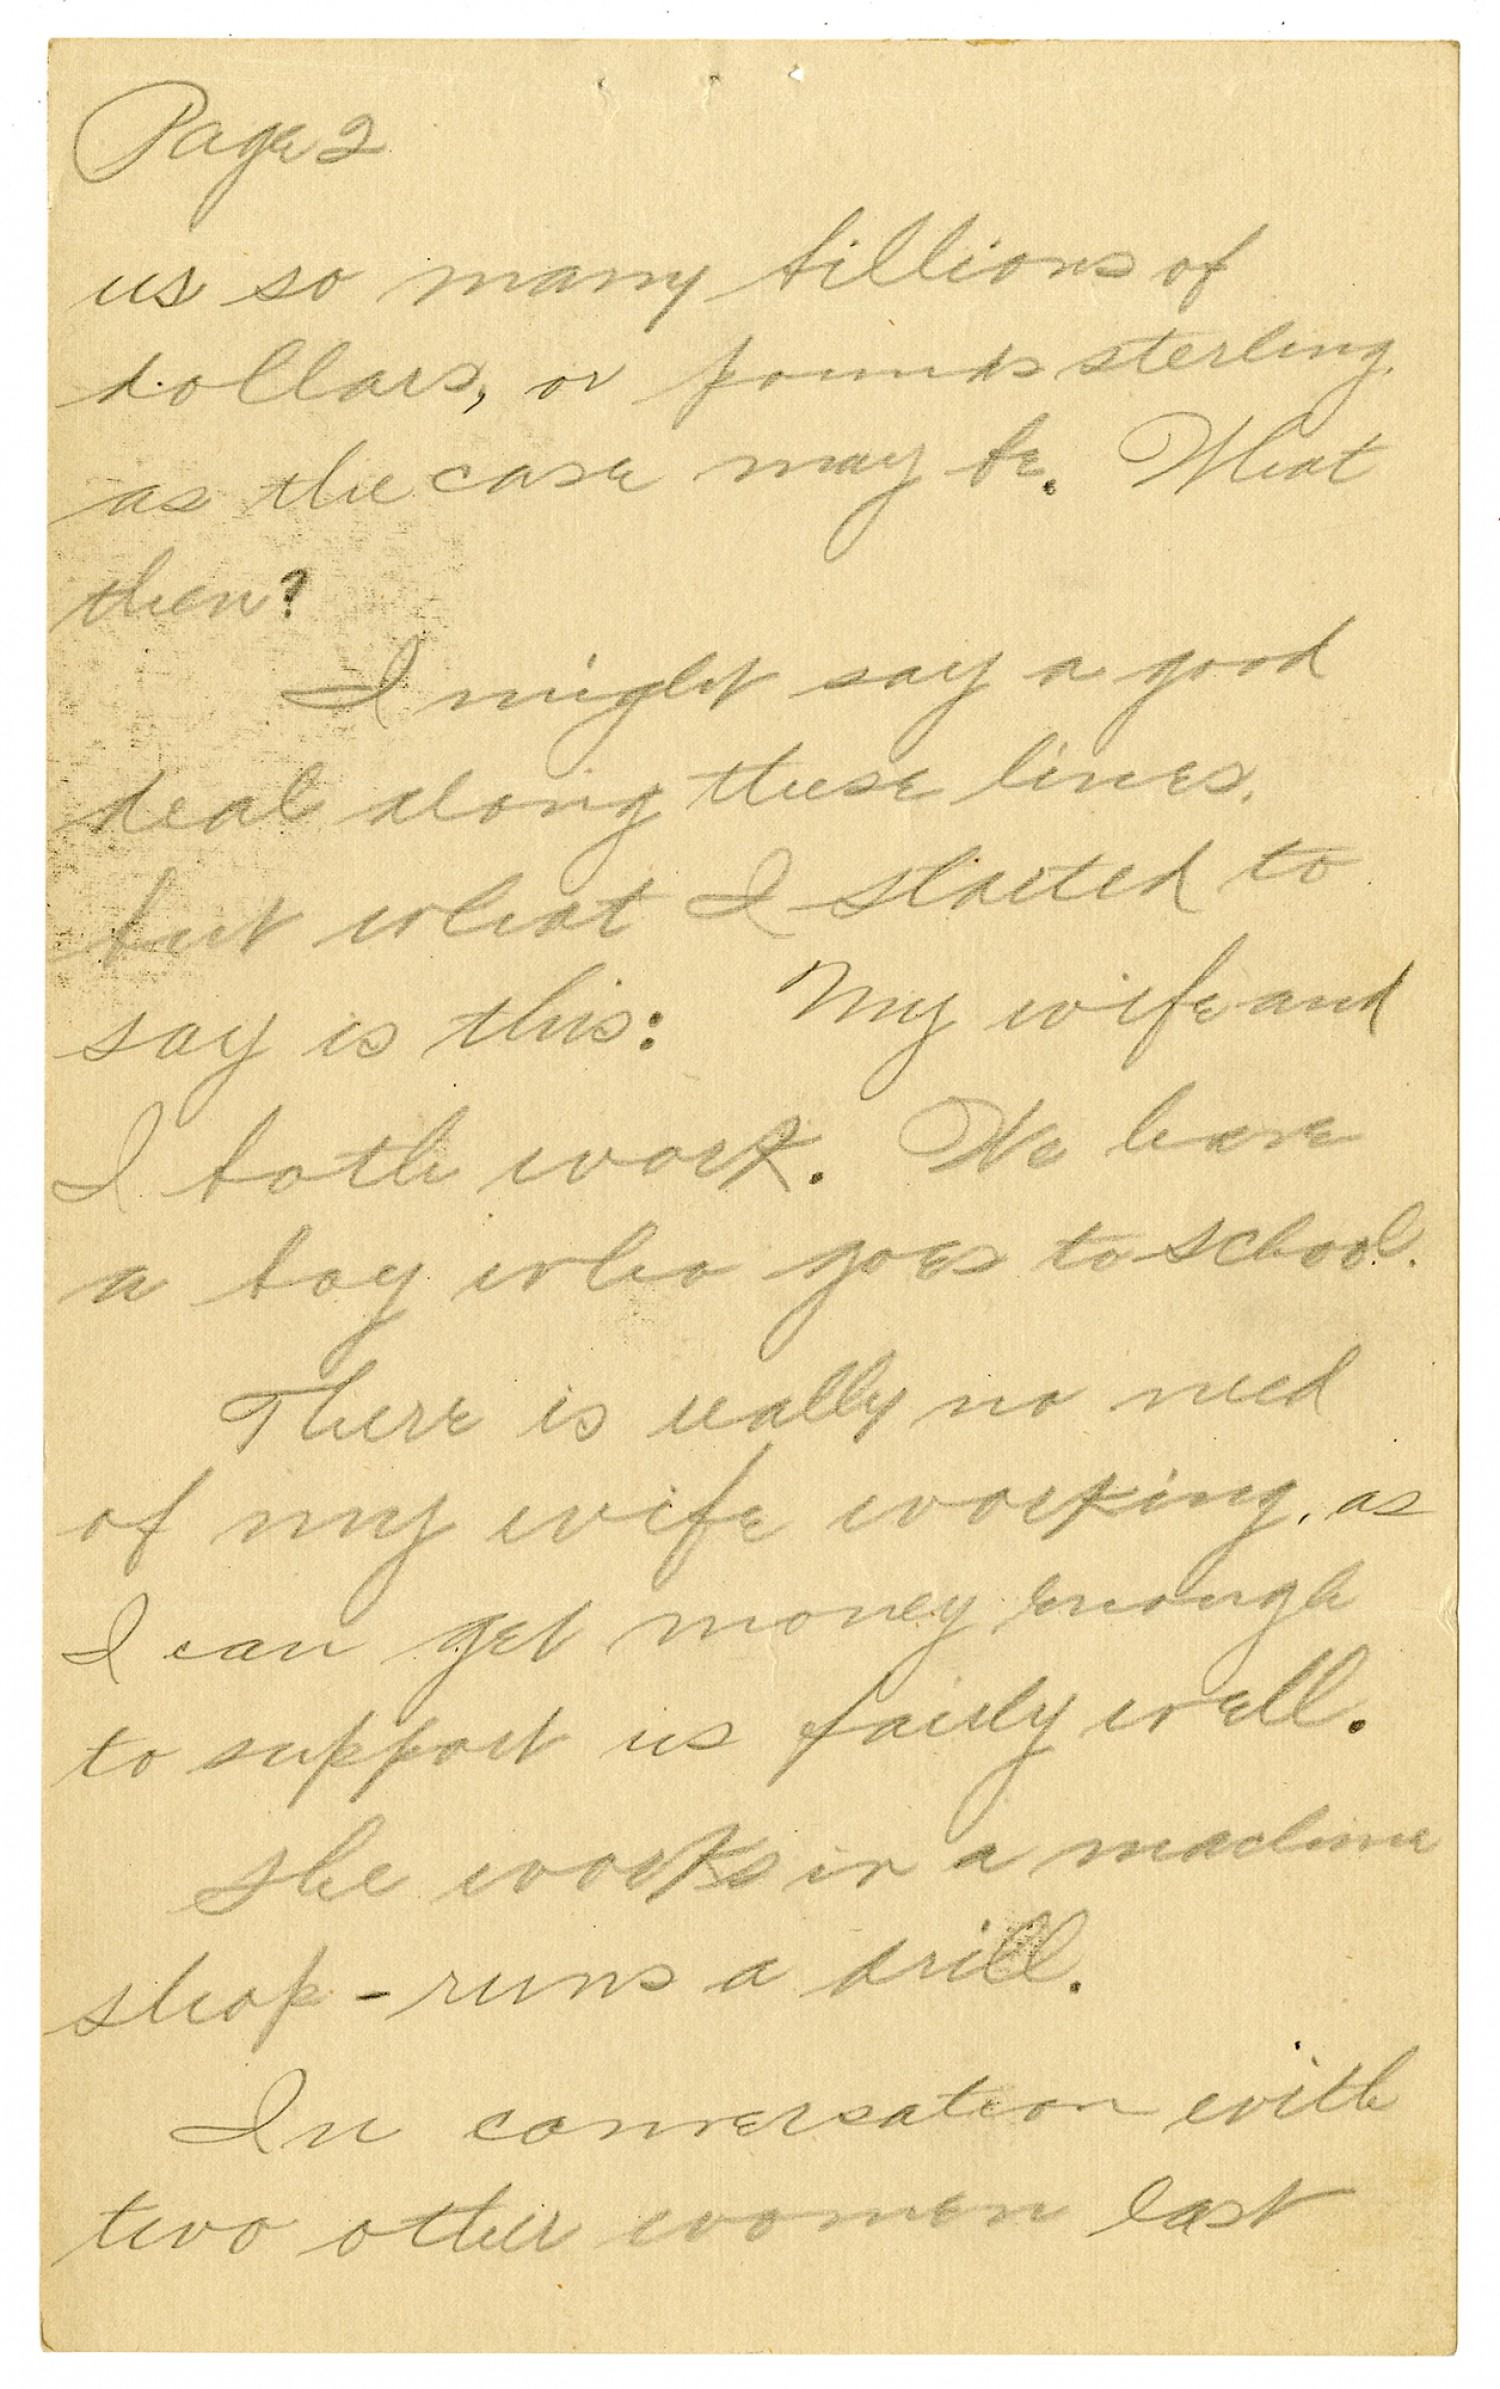 Page 2
us so many billions of
dollars, or pounds sterling,
as the case may be. What
then?
I might say a good
deal along these lines,
but what I started to
say is this: My wife and
I both work. We have
a boy who goes to school.
There is really no need
of my wife working, as
I can get money enough
to support us fairly well.
She works in a machine
shop - runs a drill.
In conversation with
two other women last